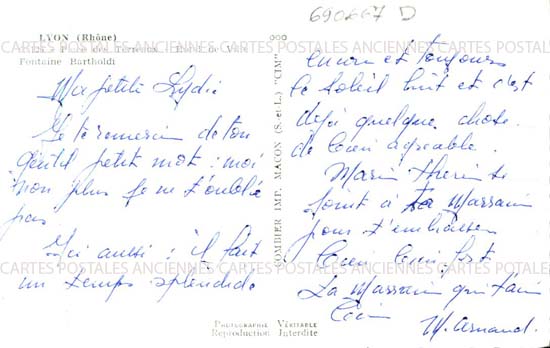 690667 D
LYON (Rhône)
Place des Terreaux Hôtel de Ville
Fontaine Bartholdi
CARTES POSTALES ANCIENNES CARTES POSTALES ANCIENNES CARTES POSTALES
Ma petite Lydie
Je te remercie de ton
gentil petit mot : moi
non plus je ne t'oublie
pas
Ici aussi : il fait
un temps splendide
COMBIER IMP. MACON (S.-et-L.) "CIM"
encore et toujours
le soleil luit et c'est
déjà quelque chose
de bien agréable.
Marie Thérèse
joint à ta Marraine
pour t'embrasser
bien bien fort
Ta Marraine qui t'aime
bien
M. Arnaud.
CARTES POSTALES ANCIENNES CARTES POSTALES ANCIENNES CARTES POSTALES
PHOTOGRAPHIE VÉRITABLE
Reproduction Interdite